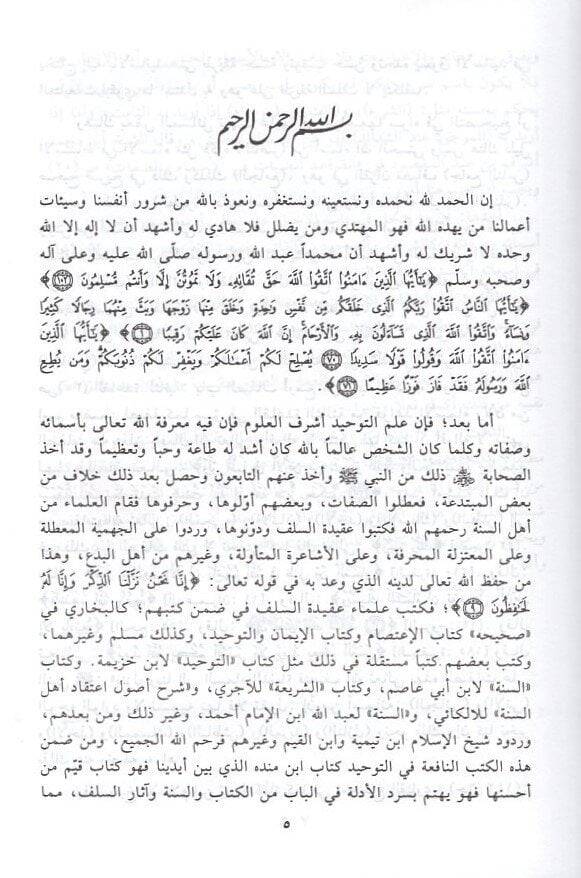 بسم الله الرحمن الرحيم
إن الحمد لله نحمده ونستعينه ونستغفره ونعوذ بالله من شرور أنفسنا وسيئات
أعمالنا من يهده الله فهو المهتدي ومن يضلل فلا هادي له وأشهد أن لا إله إلا الله
وحده لا شريك له وأشهد أن محمداً عبد الله ورسوله صلّى الله عليه وعلى آله
وصحبه وسلّم ﴿يَٰٓأَيُّهَا ٱلَّذِينَ ءَامَنُوا۟ ٱتَّقُوا۟ ٱللَّهَ حَقَّ تُقَاتِهِۦ وَلَا تَمُوتُنَّ إِلَّا وَأَنتُم مُّسْلِمُونَ ۝١٠٢﴾
﴿يَٰٓأَيُّهَا ٱلنَّاسُ ٱتَّقُوا۟ رَبَّكُمُ ٱلَّذِى خَلَقَكُم مِّن نَّفْسٍ وَٰحِدَةٍ وَخَلَقَ مِنْهَا زَوْجَهَا وَبَثَّ مِنْهُمَا رِجَالًا كَثِيرًا
وَنِسَآءً ۚ وَٱتَّقُوا۟ ٱللَّهَ ٱلَّذِى تَسَآءَلُونَ بِهِۦ وَٱلْأَرْحَامَ ۚ إِنَّ ٱللَّهَ كَانَ عَلَيْكُمْ رَقِيبًا ۝١﴾ ﴿يَٰٓأَيُّهَا ٱلَّذِينَ
ءَامَنُوا۟ ٱتَّقُوا۟ ٱللَّهَ وَقُولُوا۟ قَوْلًا سَدِيدًا ۝٧٠ يُصْلِحْ لَكُمْ أَعْمَٰلَكُمْ وَيَغْفِرْ لَكُمْ ذُنُوبَكُمْ ۗ وَمَن يُطِعِ
ٱللَّهَ وَرَسُولَهُۥ فَقَدْ فَازَ فَوْزًا عَظِيمًا ۝٧١﴾.
أما بعد؛ فإن علم التوحيد أشرف العلوم فإن فيه معرفة الله تعالى بأسمائه
وصفاته وكلما كان الشخص عالماً بالله كان أشد له طاعة وحباً وتعظيماً وقد أخذ
الصحابة ﷺ ذلك من النبي ﷺ وأخذ عنهم التابعون وحصل بعد ذلك خلاف من
بعض المبتدعة، فعطلوا الصفات، وبعضهم أوّلوها، وحرفوها فقام العلماء من
أهل السنة رحمهم الله فكتبوا عقيدة السلف ودوّنوها، وردوا على الجهمية المعطلة
وعلى المعتزلة المحرفة، وعلى الأشاعرة المتأولة، وغيرهم من أهل البدع، وهذا
من حفظ الله تعالى لدينه الذي وعد به في قوله تعالى: ﴿إِنَّا نَحْنُ نَزَّلْنَا ٱلذِّكْرَ وَإِنَّا لَهُۥ
لَحَٰفِظُونَ ۝٩﴾؛ فكتب علماء عقيدة السلف في ضمن كتبهم؛ كالبخاري في
«صحيحه» كتاب الإعتصام وكتاب الإيمان والتوحيد، وكذلك مسلم وغيرهما،
وكتب بعضهم كتباً مستقلة في ذلك مثل كتاب «التوحيد» لابن خزيمة. وكتاب
«السنة» لابن أبي عاصم، وكتاب «الشريعة» للآجري، و«شرح أصول اعتقاد أهل
السنة» للالكائي، و«السنة» لعبد الله ابن الإمام أحمد، وغير ذلك ومن بعدهم،
وردود شيخ الإسلام ابن تيمية وابن القيم وغيرهم فرحم الله الجميع، ومن ضمن
هذه الكتب النافعة في التوحيد كتاب ابن منده الذي بين أيدينا فهو كتاب قيّم من
أحسنها فهو يهتم بسرد الأدلة في الباب من الكتاب والسنة وآثار السلف، مما
٥